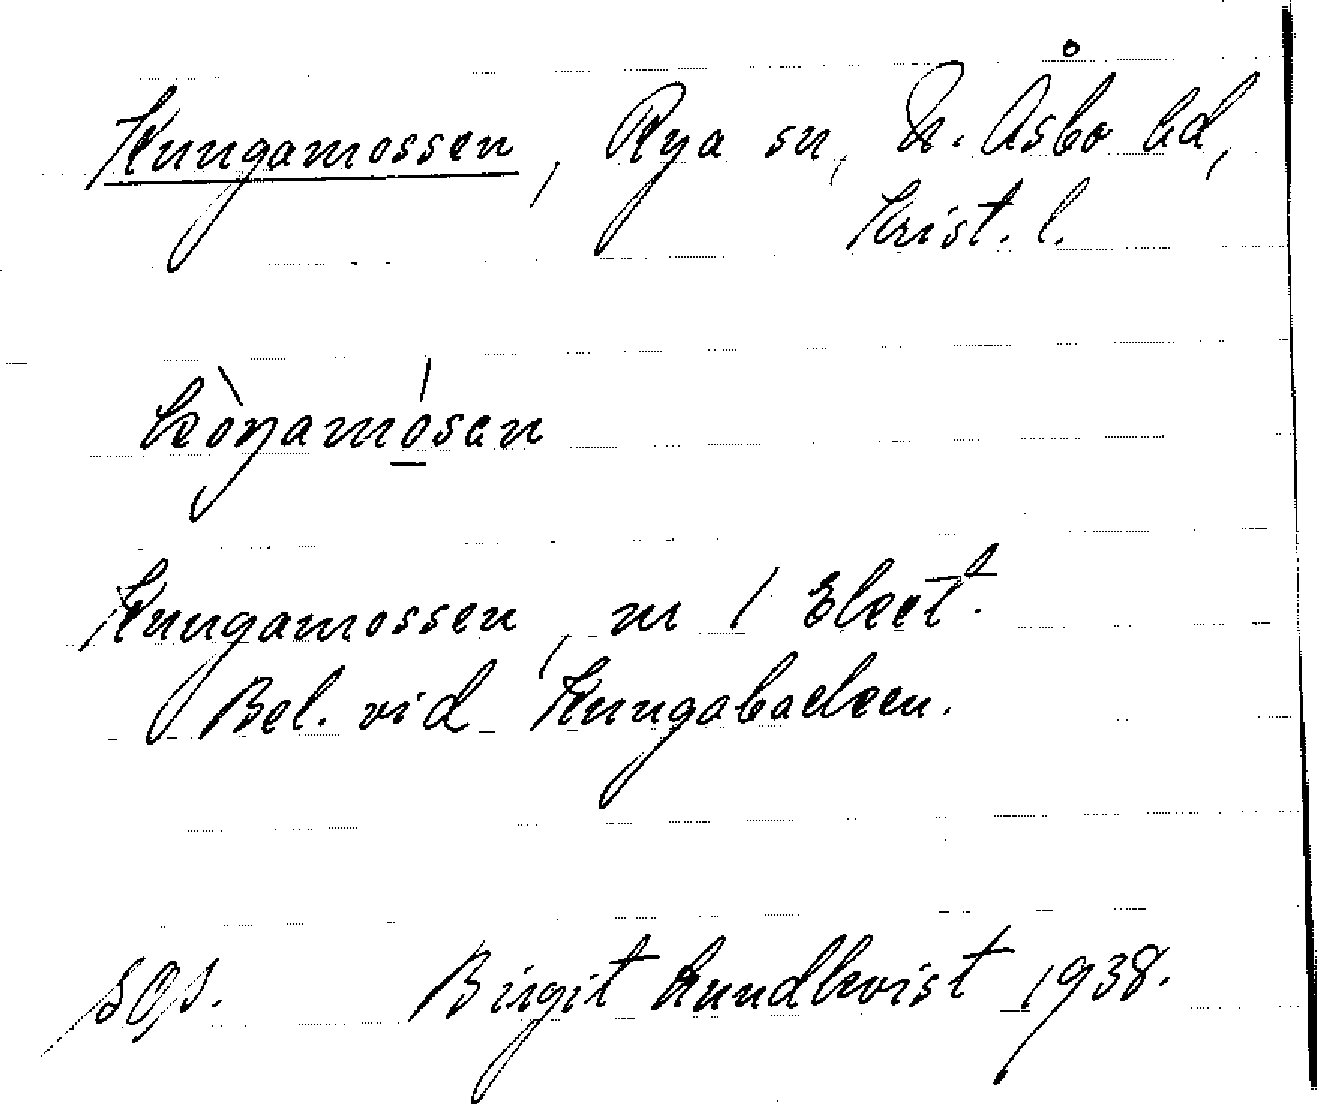 Kungamossen, Rya sn, N. Åsbo hd,
Krist. l.
kòŋamósan
Kungamossen, m 1 Ekebl.
Bel. vid Kungabacken.
SOS. Birgit Lundkvist 1938.